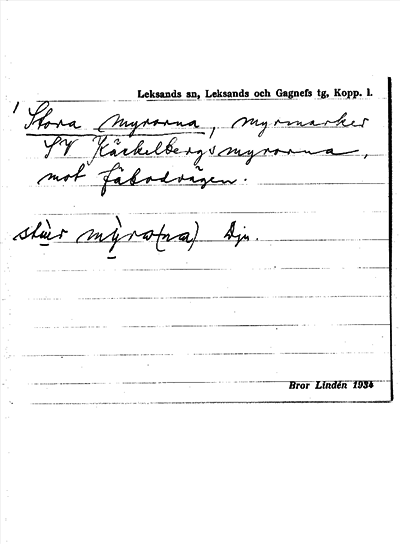 Leksands sn, Leksands och Gagnefs tg, Kopp. l.
1
Stora myrorna, myrmarker
SV Käckelbergsmyrorna,
mot fäbodvägen.
stùer mỳro(na) Dju.
Bror Lindén 1934